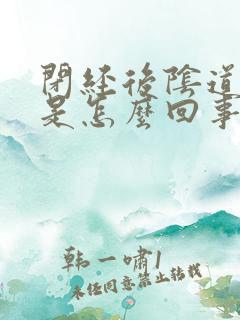 閉經後陰道
是怎麼回事
韩一啸1
未经同意禁止转载